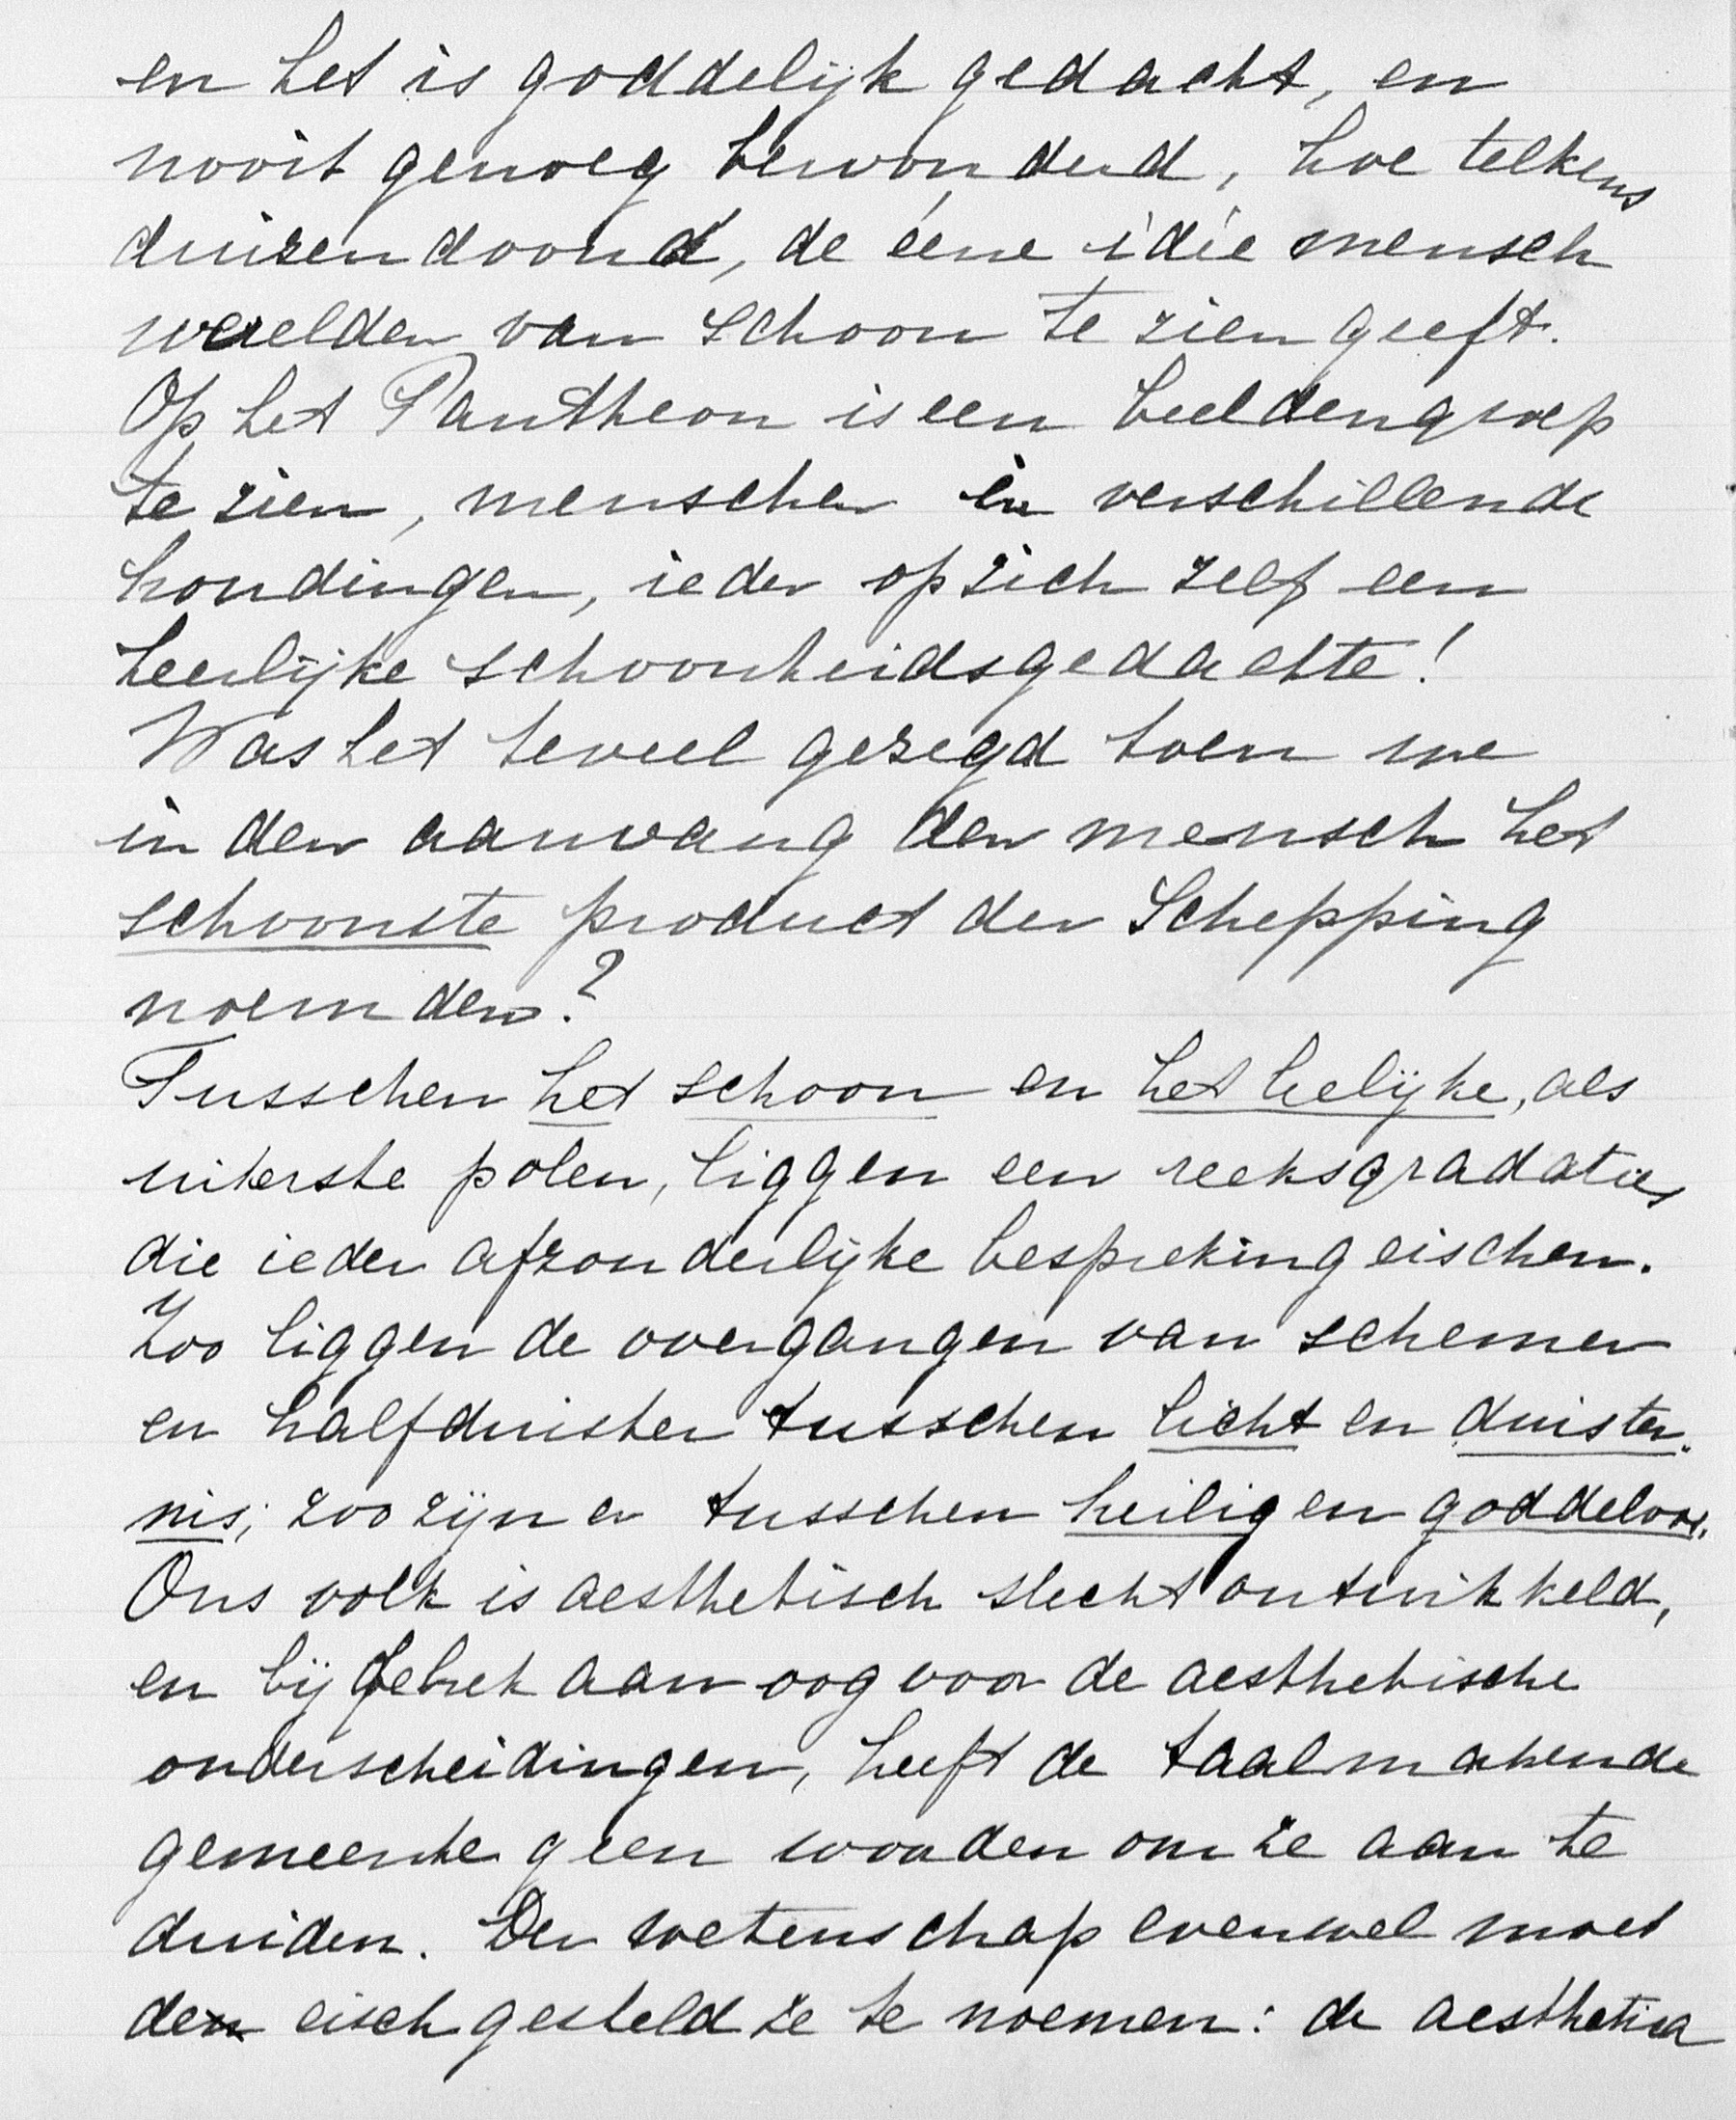 en het is goddelijk gedacht, en
nooit genoeg bewonderd, hoe telkens
duizendoond, de ééne idée mensch
werelden van schoon te zien geeft.
Op het Pantheon is een beeldengroep
te zien, menschen in verschillende
houdingen, ieder op zich zelf een
heerlijke schoonheidsgedachte!
Was het teveel gezegd toen we
in den aanvang den mensch het
schoonste product der Schepping
noemden?
Tusschen het schoon en het lelijke, als
uiterste polen, liggen een reeks gradaties
die ieder afzonderlijke bespreking eischen.
Zoo liggen de overgangen van schemer
en halfduister tusschen licht en duister-
nis; zoo zijn er tusschen heilig en goddeloos.
Ons volk is aesthetisch slecht ontwikkeld,
en bij gebrek aan oog voor de aesthetische
onderscheidingen, heeft de taalmakende
gemeente geen woorden om ze aan te
duiden. Der wetenschap evenwel moet
den eisch gesteld ze te noemen: de aesthetica